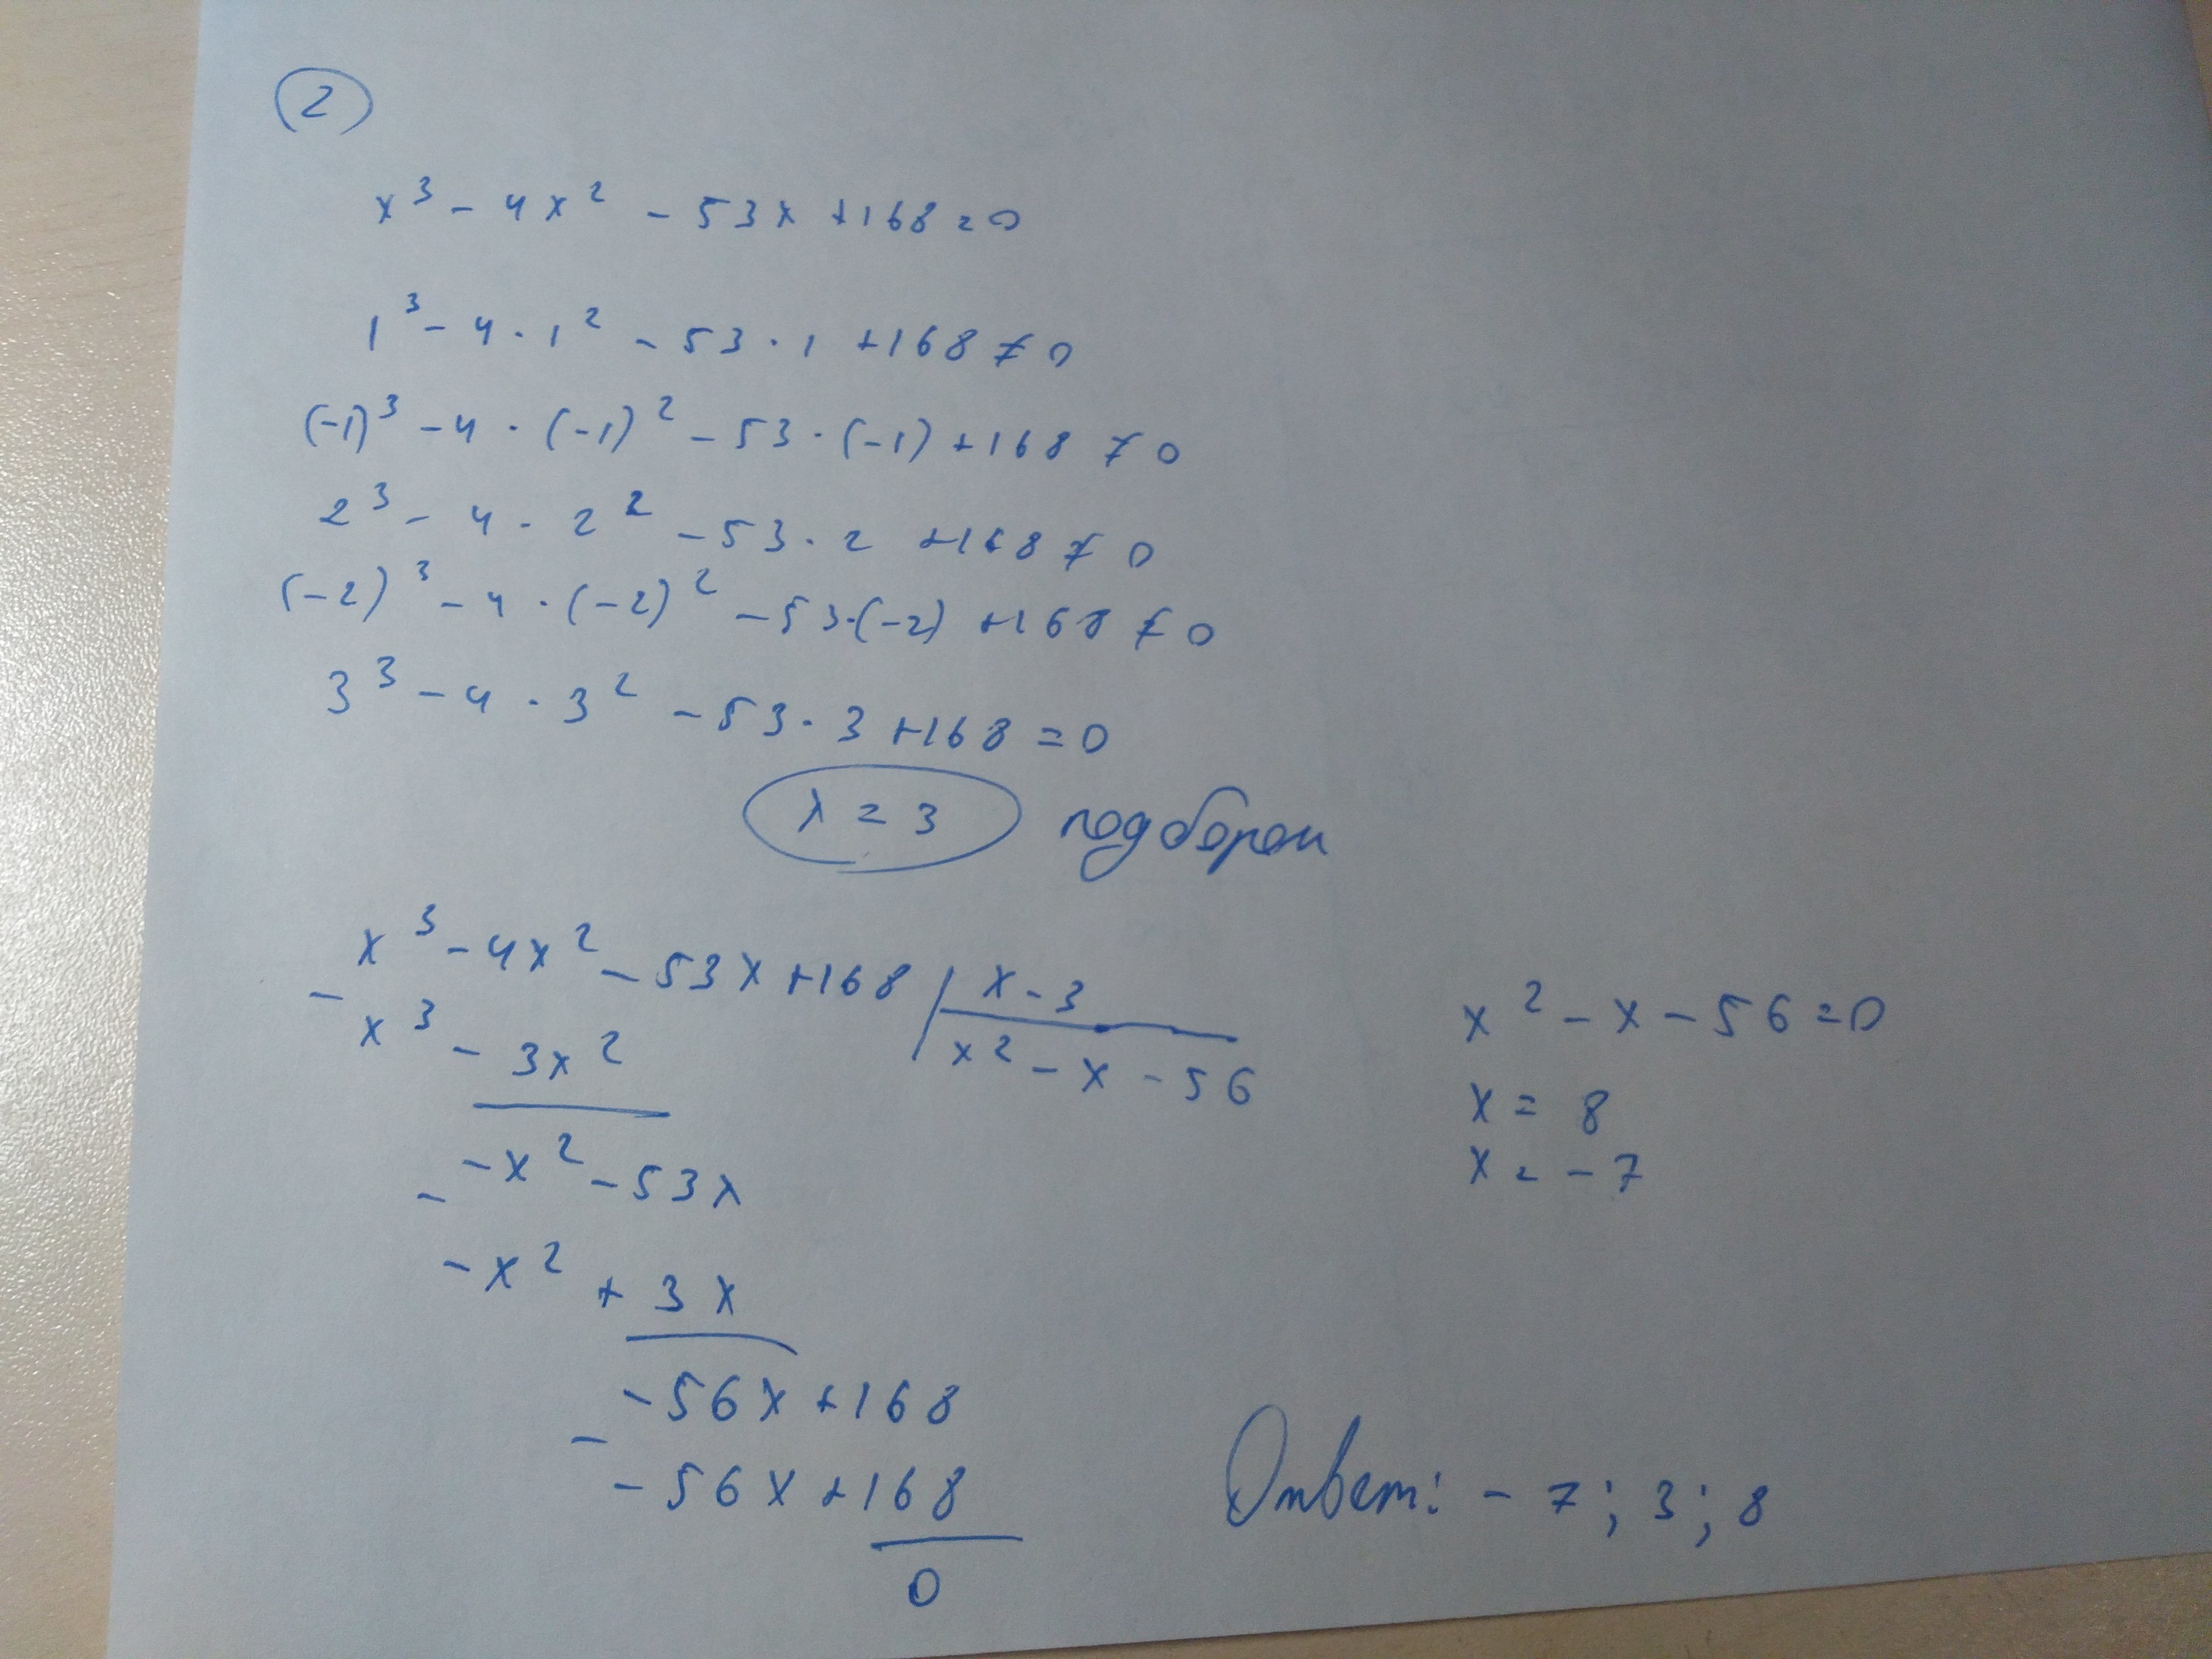 2
x³ - 4x² - 53x + 168 = 0
1³ - 4 · 1² - 53 · 1 + 168 ≠ 0
(-1)³ - 4 · (-1)² - 53 · (-1) + 168 ≠ 0
2³ - 4 · 2² - 53 · 2 + 168 ≠ 0
(-2)³ - 4 · (-2)² - 53 · (-2) + 168 ≠ 0
3³ - 4 · 3² - 53 · 3 + 168 = 0
x = 3 подбором
x³ - 4x² - 53x + 168 | x - 3
- x³ - 3x² | x² - x - 56
-x² - 53x
- -x² + 3x
-56x + 168
- -56x + 168
0
x² - x - 56 = 0
x = 8
x = -7
Ответ: -7; 3; 8